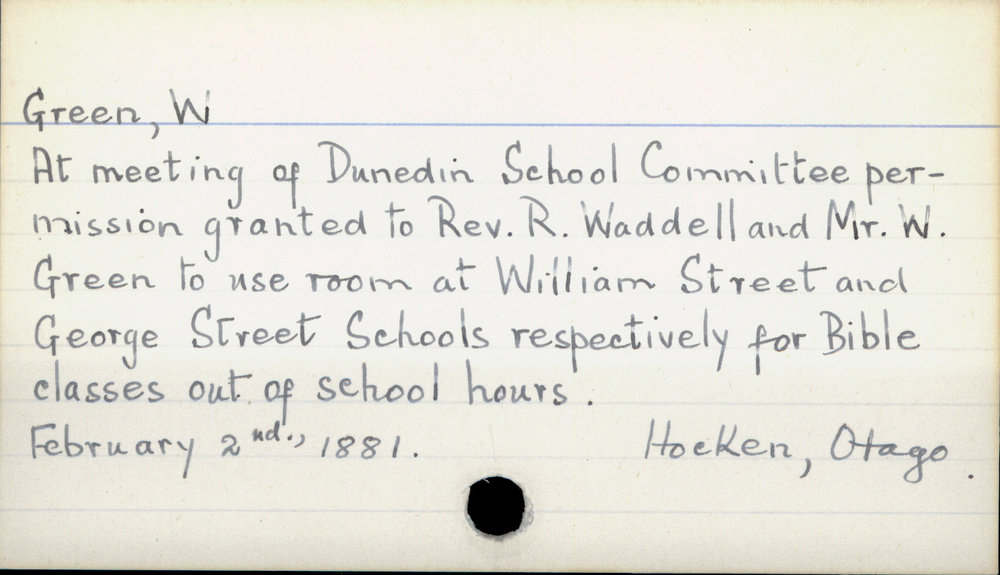 Green, W
At meeting of Dunedin School Committee per-
mission granted to Rev. R. Waddell and Mr. W.
Green to use room at William Street and
George Street Schools respectively for Bible
classes out of school hours.
February 2nd., 1881. Hocken, Otago.